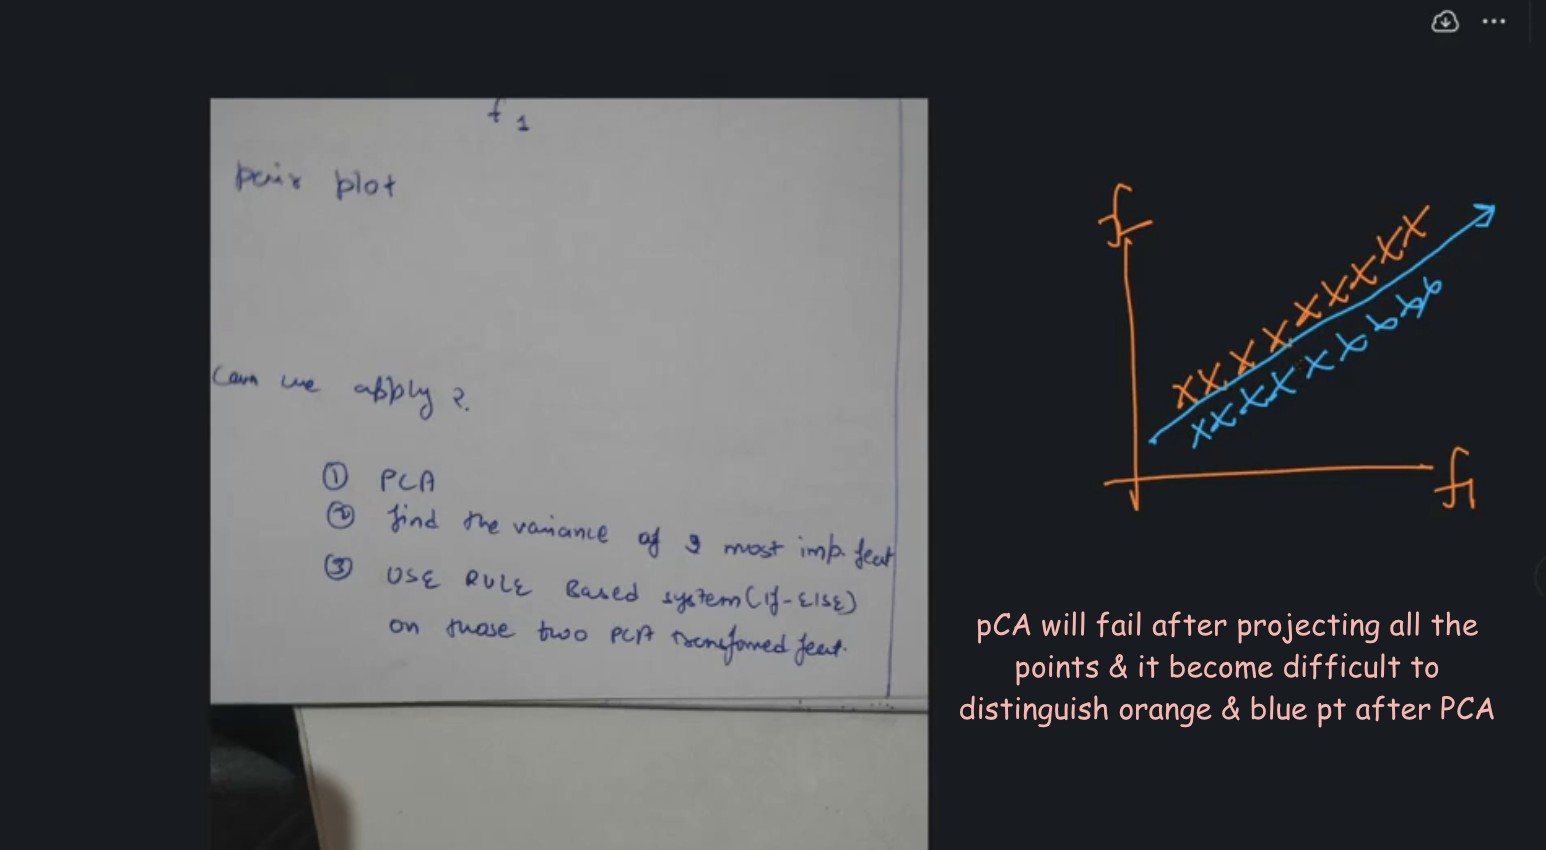 f 1
pair plot
Can we apply ?
① PCA
② find the variance of 2 most imp. feat
③ USE RULE Based system (if-ElSE)
on those two PCA transfomed feat.
f
f1
pCA will fail after projecting all the
points & it become difficult to
distinguish orange & blue pt after PCA